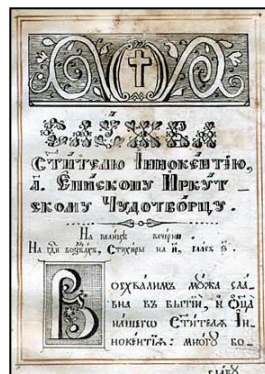 СЛꙊЖБА
Ст҃и́телю Інноке́нтїю,
а҃. Епископу Иркут_
скому Чудотво́рцу.
На вели́цѣй вече́рни
На гдⷭ҇и воззва́хъ, Стихи́ры на и҃, гласъ
Восхва́лимъ мꙋ́жа сла́_
вна въ бытїи́, и ѻтца̀
на́шего Ст҃и́теля Ін_
ноке́нтїѧ: мно́гꙋ бо_
сла́вꙋ